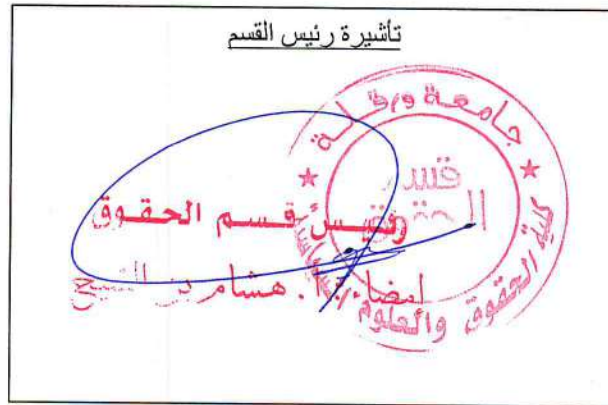 تأشيرة رئيس القسم
جامعة ورقلة
كلية الحقوق والعلوم
قسم
الحقوق
رئيس قسم الحقوق
امضاء: أ. هشام بن الشيخ